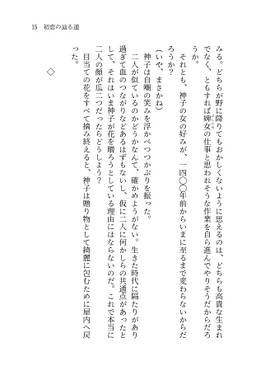 15 初恋の辿る道
みる。どちらが野に降りてもおかしくないように思えるのは、どちらも高貴な生まれ
でなく、ともすれば婢女の仕事と思われそうな作業を自ら進んでやりそうだからだろ
うか。
それとも、神子の女の好みが、一四〇〇年前からいまに至るまで変わらないからだ
ろうか？
（いや、まさかね）
神子は自嘲の笑みを浮かべつつかぶりを振った。
二人が似ているのかどうかなんて、確かめようがない。生きた時代に隔たりがあり
過ぎて血のつながりなどあるはずもないし、仮に二人に何かしらの共通点があったと
して、それはいま神子が花を贈ろうとしている理由にはならないのだ。これで本当に
二人の顔が瓜二つだったらどうしよう？
目当ての花をすべて摘み終えると、神子は贈り物として綺麗に包むために屋内へ戻
った。
◇